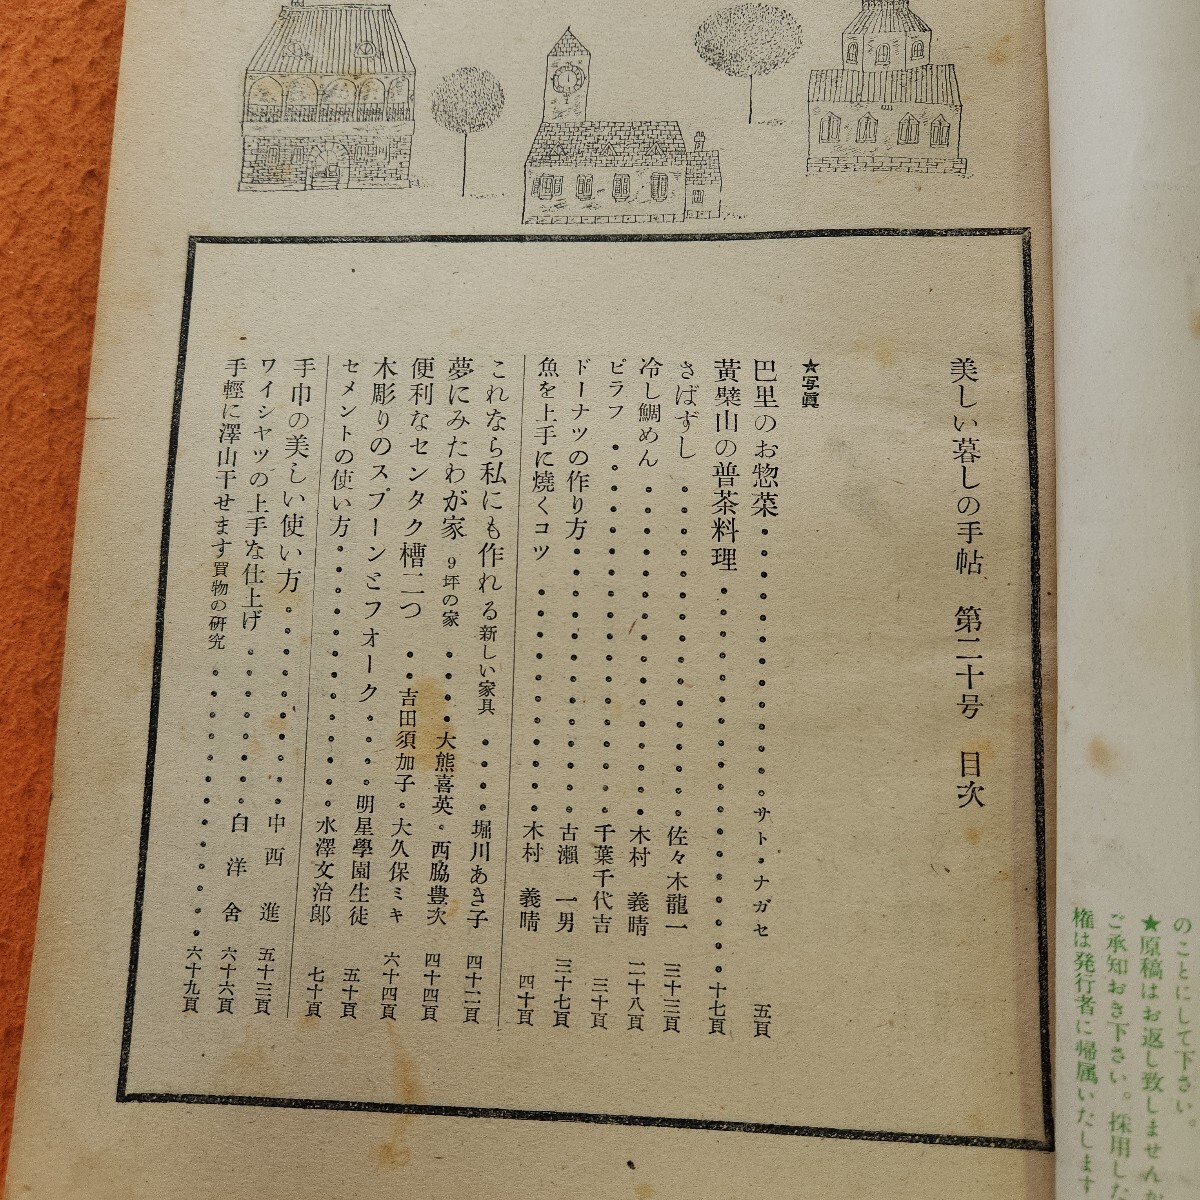 のことにして下さい。
★原稿はお返し致しませんか
ご承知おき下さい。採用した
権は発行者に帰属いたします
美しい暮しの手帖 第二十号 目次
★写眞
巴里のお惣菜・・・・・・・・・・・・サト・ナガセ 五頁
黃檗山の普茶料理・・・・・・・・・・・・・・十七頁
さばずし・・・・・・・・・・・・佐々木龍一 三十三頁
冷し鯛めん・・・・・・・・・・・木村 義晴 二十八頁
ピラフ・・・・・・・・・・・・・千葉千代吉 三十頁
ドーナツの作り方・・・・・・・・・古瀬 一男 三十七頁
魚を上手に燒くコツ・・・・・・・・木村 義晴 四十頁
これなら私にも作れる新しい家具・・・・堀川あき子 四十二頁
夢にみたわが家 9坪の家・・・・大熊喜英・西脇豊次 四十四頁
便利なセンタク槽二つ・・吉田須加子・大久保ミキ 六十四頁
木彫りのスプーンとフオーク・・・・明星學園生徒 五十頁
セメントの使い方・・・・・・・・・・水澤文治郎 七十頁
手巾の美しい使い方・・・・・・・・中西 進 五十三頁
ワイシヤツの上手な仕上げ・・・・・・白洋舍 六十六頁
手輕に澤山干せます買物の研究・・・・・・・・・・・・六十九頁